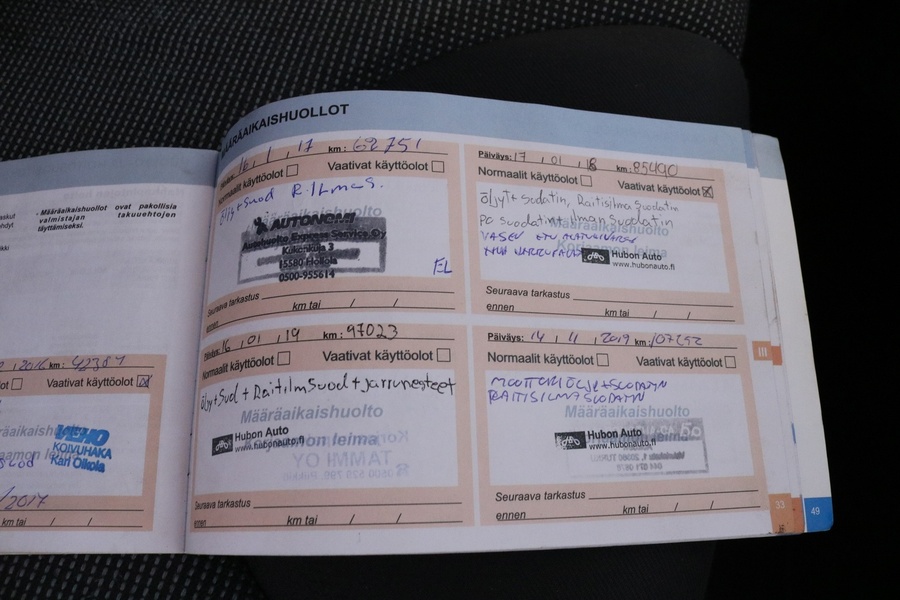 MÄÄRÄAIKAISHUOLLOT
- Määräaikaishuollot ovat pakollisia
valmistajan takuuehtojen
täyttämiseksi.
2016 km: 42384
Vaativat käyttöolot
VEHO
KOIVUHAKA
Kari Oikola
/2017
km tai / /
16 , 1 , 17 km: 62751
Normaalit käyttöolot Vaativat käyttöolot
Öljyt+Suod R.Ilmas.
AUTONOMI
Autohuolto Express Service Oy
Kukonkuja 3
15580 Hollola
0500-955614
FL
Seuraava tarkastus
ennen km tai / /
Päiväys: 17 , 01 , 18 km: 85490
Normaalit käyttöolot Vaativat käyttöolot
öljyt+ Suodatin, Raitisilma Suodatin
pa suodatin+ ilman Suodatin
Määräaikaishuolto
Korjaamon leima
VASEN ETU
Hubon Auto
www.hubonauto.fi
Seuraava tarkastus
ennen km tai / /
Päiväys: 16 , 01 , 19 km: 97023
Normaalit käyttöolot Vaativat käyttöolot
öljy+Suod+Raitilmsuod+jarrunesteet
Määräaikaishuolto
Korjaamon leima
Hubon Auto
www.hubonauto.fi
Seuraava tarkastus
ennen km tai / /
Päiväys: 14 , 11 , 2019 km:
Normaalit käyttöolot Vaativat käyttöolot
MOOTTORIÖLJY+SUODATIN
RAITISILMASUODATIN
Määräaikaishuolto
Hubon Auto
www.hubonauto.fi
Seuraava tarkastus
ennen km tai / /
III
33
49